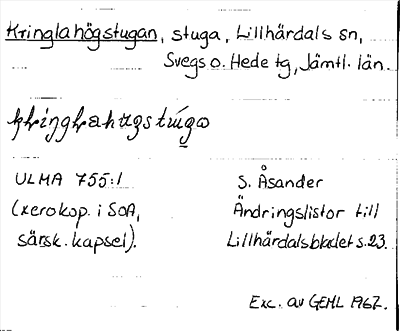 Kringlahögstugan, stuga, Lillhärdals sn,
Svegs o. Hede tg, Jämtl. län.
ULMA 755:1
(xerokop. i SOA,
särsk. kapsel).
S. Åsander
Ändringslistor till
Lillhärdalsbladet s. 23.
Exc. av GEHL 1967.